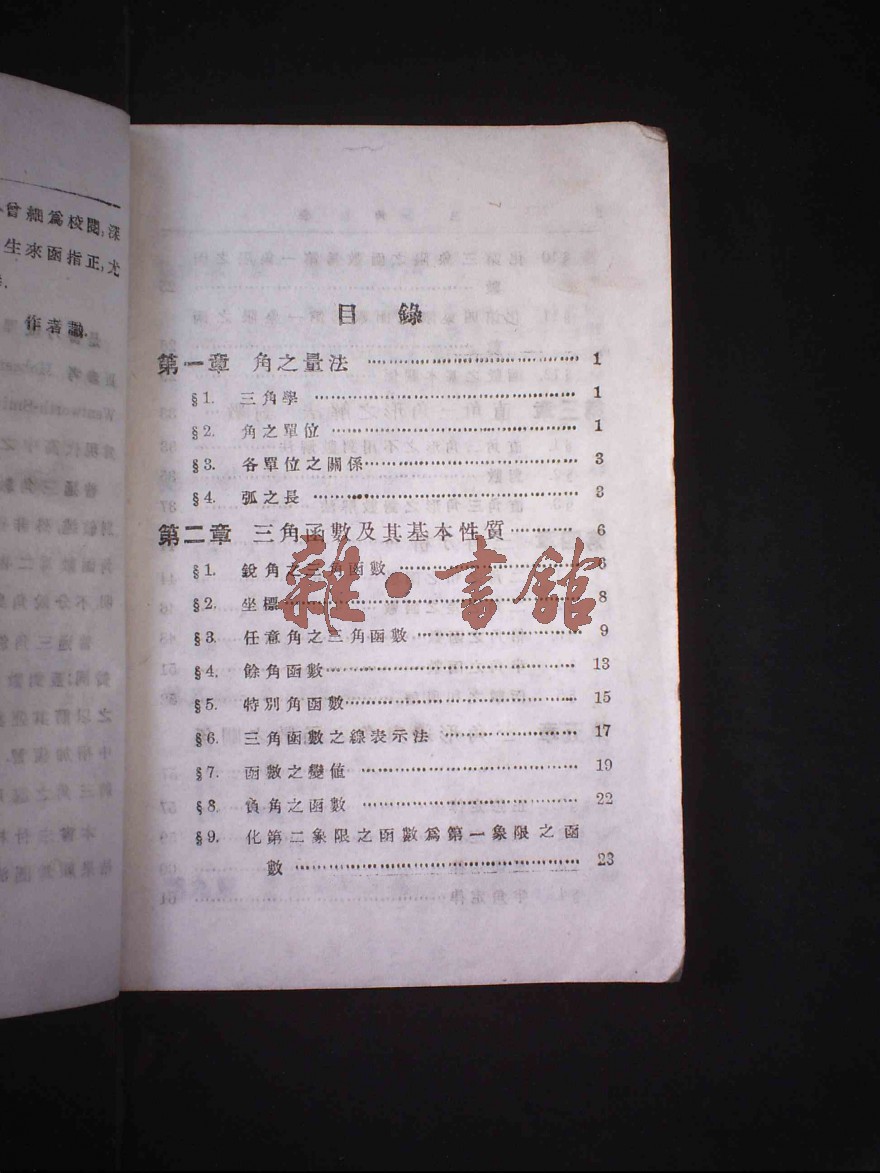 曾細爲校閱,深
生來函指正,尤
作者識.
目 錄
第一章 角之量法 ………………………… 1
§1. 三角學 ………………………… 1
§2. 角之單位 ………………………… 1
§3. 各單位之關係 ………………………… 3
§4. 弧之長 ………………………… 3
第二章 三角函數及其基本性質 ………… 6
§1. 銳角之三角函數 ………………………… 6
§2. 坐標 ………………………… 8
§3. 任意角之三角函數 ………………………… 9
§4. 餘角函數 ………………………… 13
§5. 特別角函數 ………………………… 15
§6. 三角函數之線表示法 ………………………… 17
§7. 函數之變值 ………………………… 19
§8. 負角之函數 ………………………… 22
§9. 化第二象限之函數爲第一象限之函
數 ………………………… 23
雜·書館